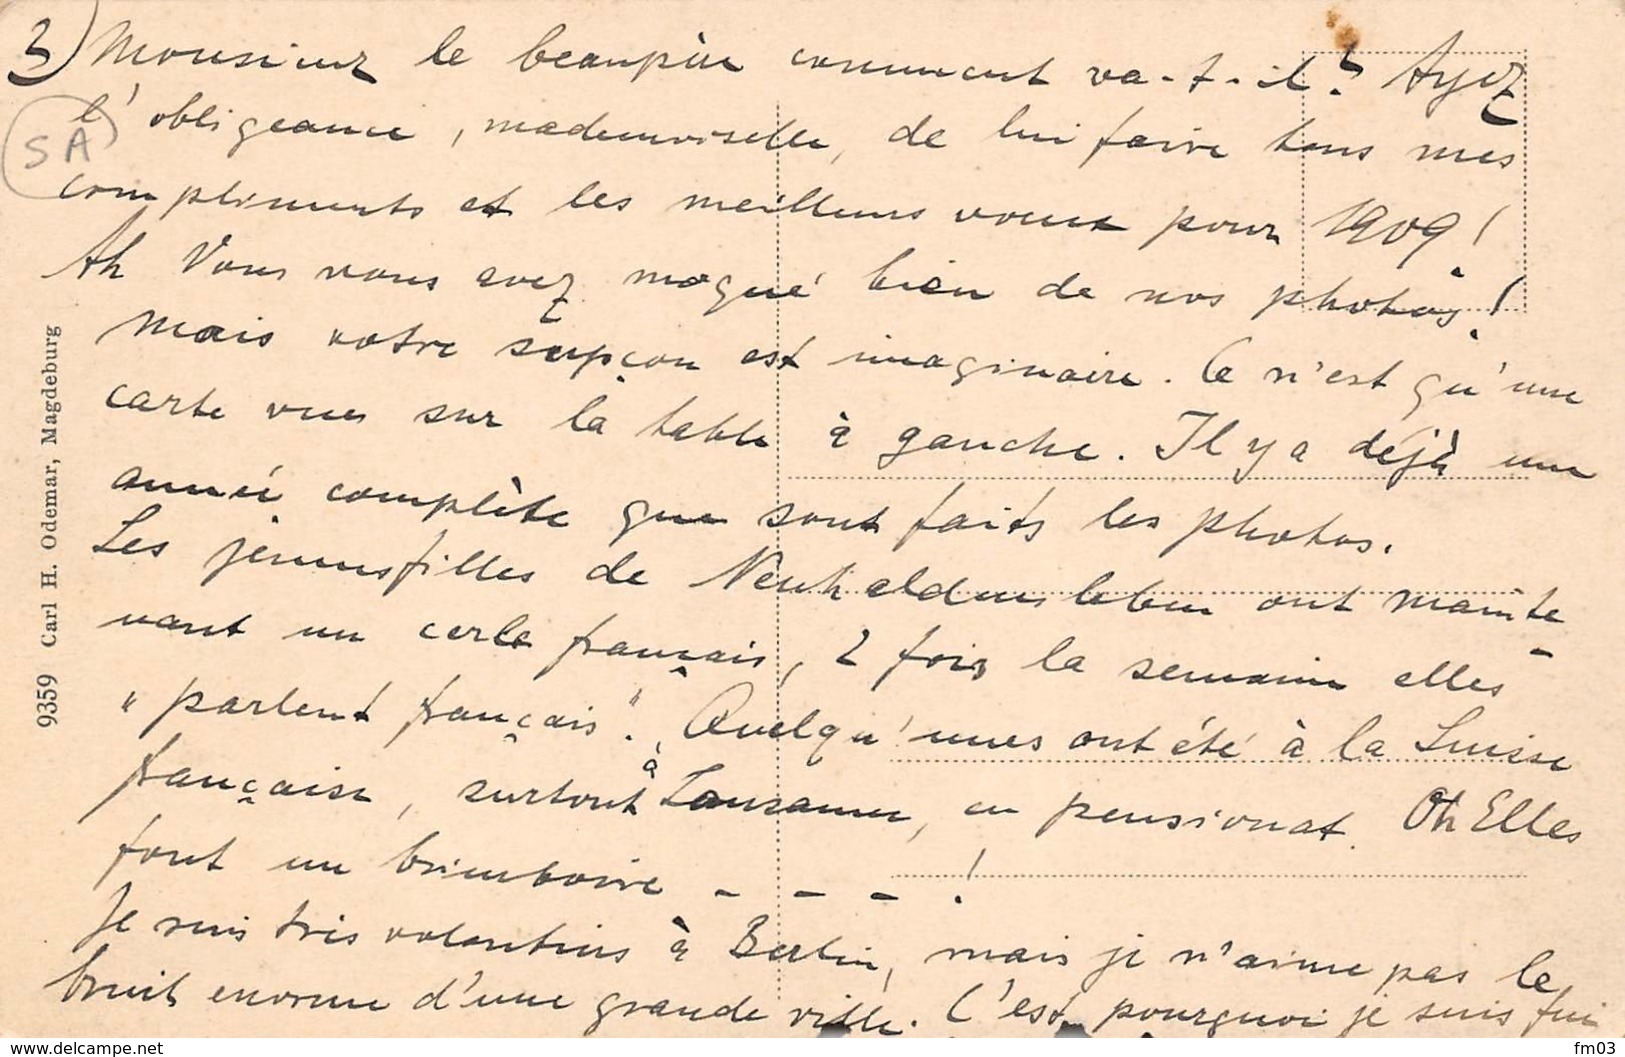 2) Monsieur le beaupère comment va-t-il? Ayez
l'obligeance, mademoiselle, de lui faire tous mes
SA
compliments et les meilleurs voeux pour 1909!
Ah Vous vous avez moqué bien de nos photos!
Mais votre supçon est imaginaire. Ce n'est qu'une
carte vue sur la table à gauche. Il y a déjà une
année complète que sont faits les photos.
Les jeunesfilles de Neuhaldensleben ont mainte-
nant un cercle français, 2 fois la semaine elles
"parlent français". Quelqu'unes ont été à la Suisse
française, surtout à Lausanne, en pensionat. Oh Elles
font un brimboire - - - !
Je suis très volontiers à Berlin, mais je n'aime pas le
bruit enorme d'une grande ville. C'est pourquoi je suis
9359 Carl H. Odemar, Magdeburg
fm03